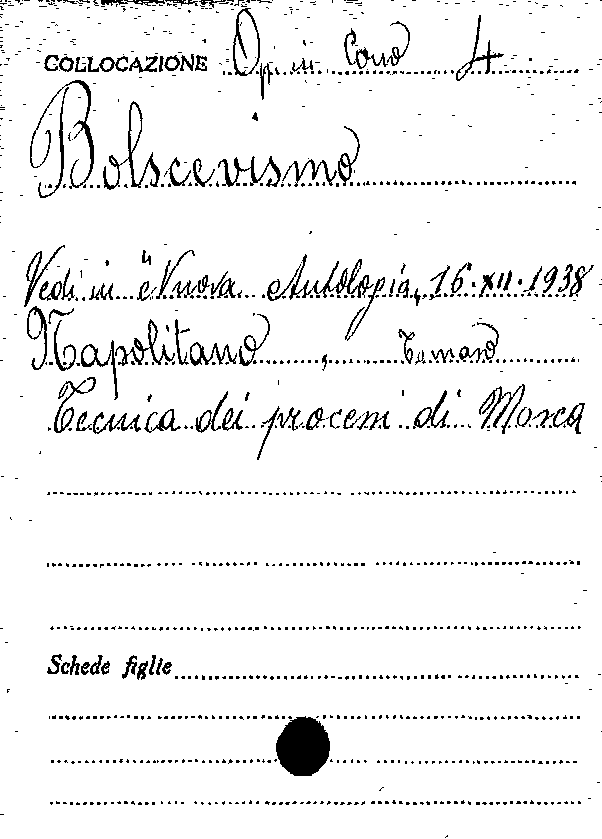 COLLOCAZIONE Op. in Corso 4
Bolscevismo
Vedi in "Nuova Antologia„ 16.XII.1938
Napolitano, Tomaso
Tecnica dei processi di Mosca
Schede figlie